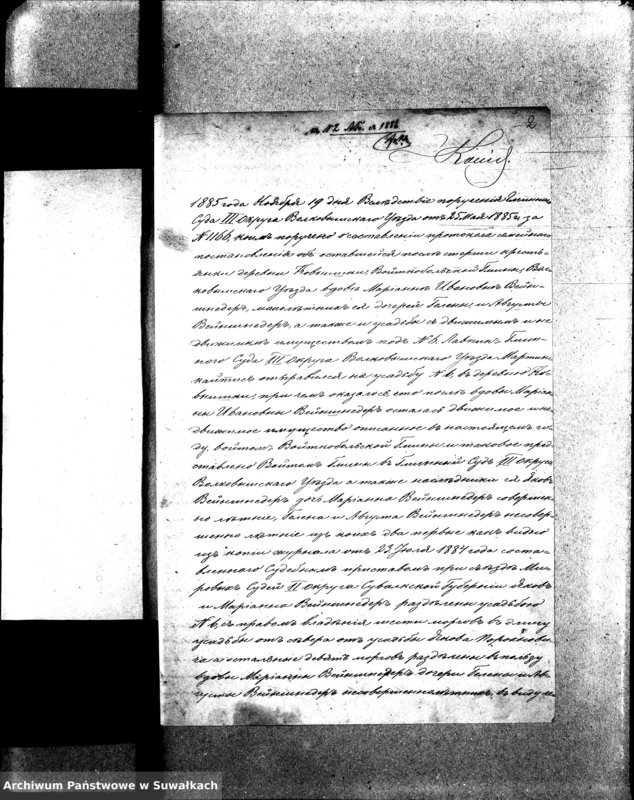 къ № 2 1886
2
Копія.
1885 года Ноября 19 дня Вслѣдствіе порученія Гминнаго
Суда III Округа Волковышскаго Уѣзда отъ 25 Мая 1885 г. за
№ 1166, коимъ поручено о составленіи протокола семейнаго
постановленія объ оставшейся послѣ смерти кресть-
янки деревни Войткобольской Гмины, Вол-
ковышскаго Уѣзда вдовы Маріанны Ивановны Вейн-
шнедеръ, малолѣтнихъ ея дочерей Гелены и Августы
Вейншнедеръ, а также и усадьбы съ движимымъ и не
движимымъ имуществомъ подъ № 6, Лавникъ Гмин-
наго Суда III Округа Волковышскаго Уѣзда Мартинъ
отправился на усадьбу № 6, въ деревню Ков-
нишки, при чемъ оказалось, что послѣ вдовы Маріан-
ны Ивановны Вейншнедеръ осталось движимое и не
движимое имущество описанное въ настоящемъ го-
ду, войтомъ Войткобольской Гмины и таковое пред-
ставлено Войтомъ Гмины въ Гминный Судъ III Округа
Волковышскаго Уѣзда а также наслѣдники ея Яковъ
Вейншнедеръ дочь Маріанна Вейншнедеръ совершен-
но лѣтніе, Гелена и Августа Вейншнедеръ несовер-
шенно лѣтніе изъ коихъ два первые какъ видно
изъ копіи журнала отъ 23 Іюля 1884 года соста-
вленнаго Судебнымъ приставомъ при съѣздѣ Ми-
ровыхъ Судей II Округа Сувалкской Губерніи Яковъ
и Маріанна Вейншнедеръ раздѣлены усадьбою
№ 6, съ правомъ владѣнія шести морговъ въ длину
усадьбы отъ сѣвера отъ усадьбы Якова
га а остальные девять морговъ раздѣлены въ пользу
вдовы Маріанны Вейншнедеръ дочери Гелены и Ав-
густы Вейншнедеръ несовершеннолѣтнихъ, въ виду
Archiwum Państwowe w Suwałkach